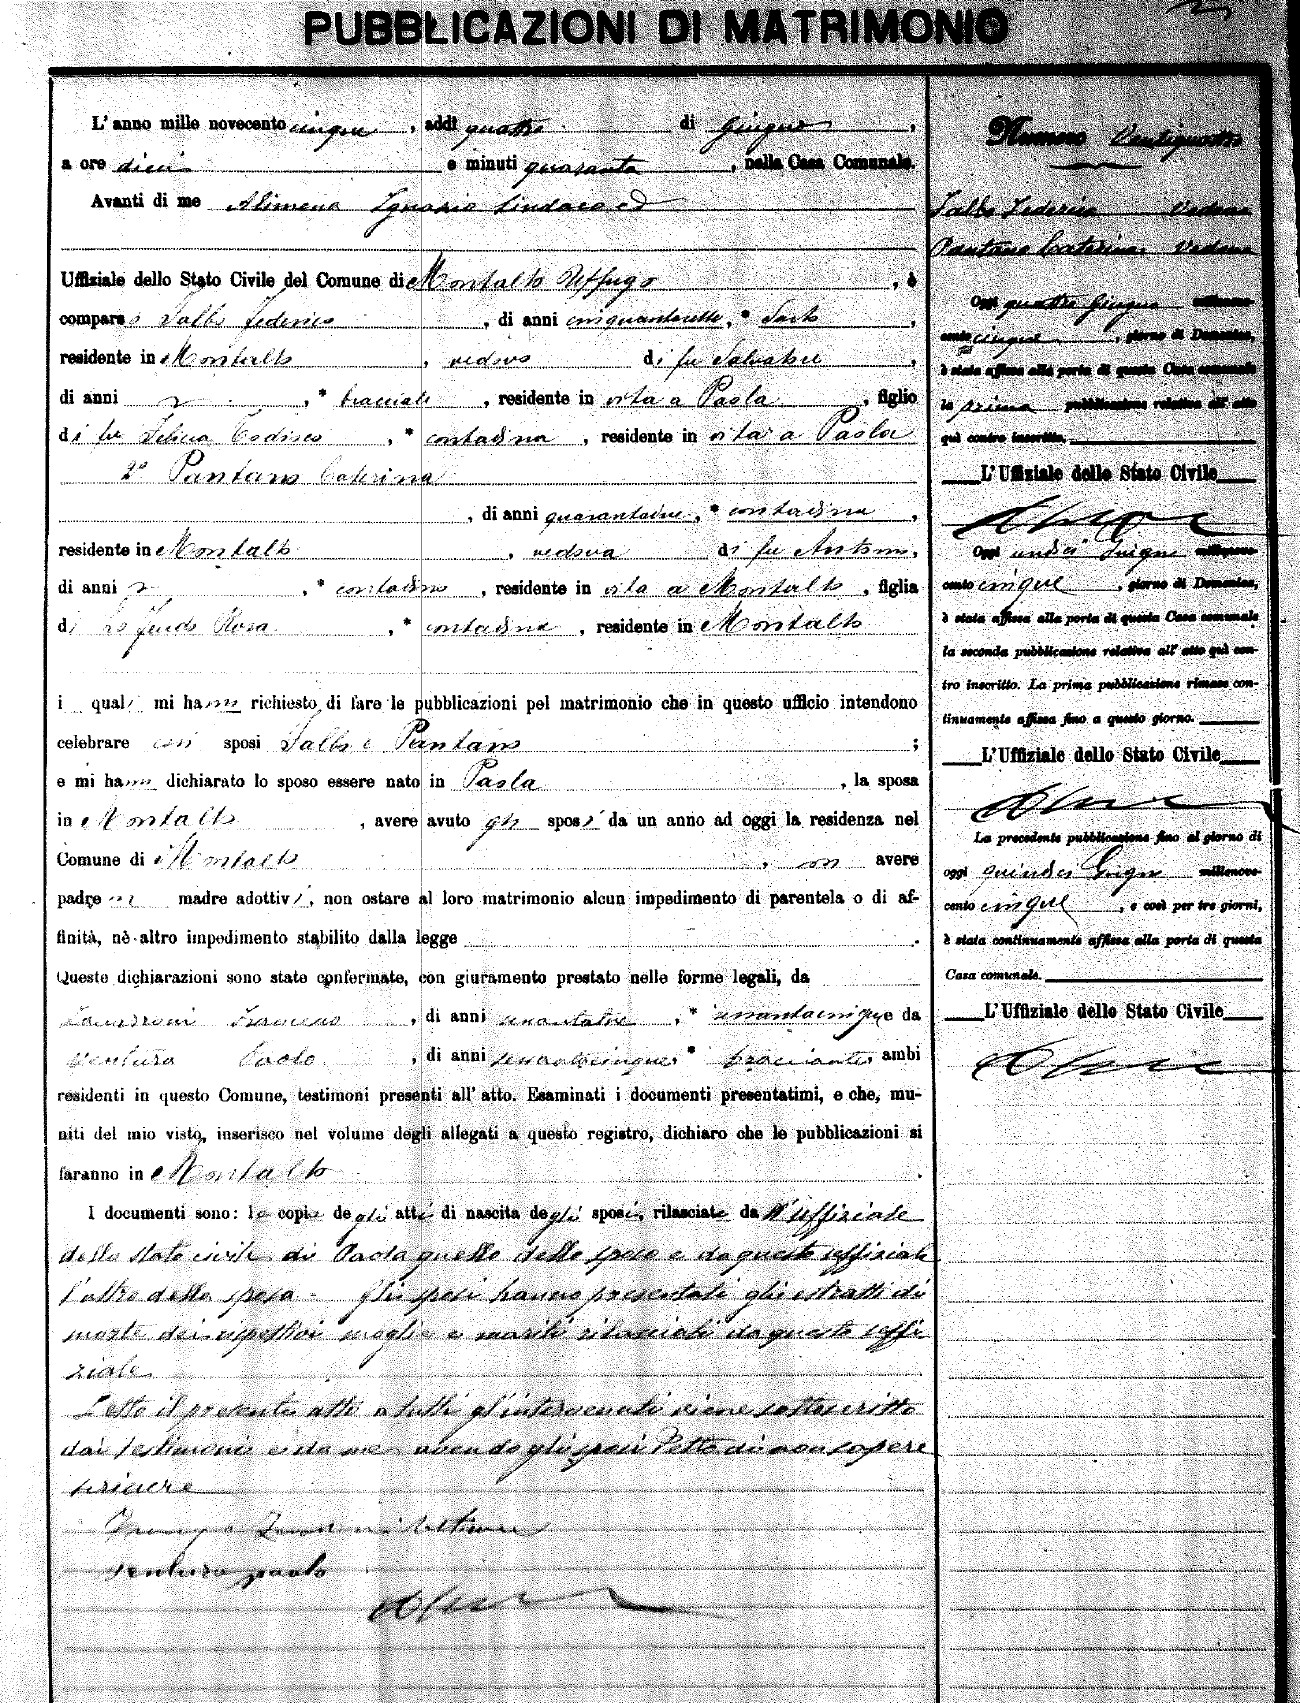 PUBBLICAZIONI DI MATRIMONIO
L'anno mille novecento cinque, addì quattro di Giugno,
a ore dieci e minuti quaranta, nella Casa Comunale.
Avanti di me Alimena Ignazio Sindaco ed
Uffiziale dello Stato Civile del Comune di Montalto Uffugo, è
comparso Federico, di anni cinquantasette, * Sarto,
residente in Montalto, vedovo di fu Salvatore,
di anni, * bracciale, residente in vita a Paola, figlio
di fu Felicia Codisco, * contadina, residente in vita a Paola
2° Pantano Caterina
, di anni * contadina,
residente in Montalto, vedova di fu Antonio,
di anni, * contadino, residente in vita a Montalto, figlia
di Rosa, * contadina, residente in Montalto
i quali mi hanno richiesto di fare le pubblicazioni pel matrimonio che in questo ufficio intendono
celebrare essi sposi e Pantano;
e mi hanno dichiarato lo sposo essere nato in Paola, la sposa
in Montalto, avere avuto gli sposi da un anno ad oggi la residenza nel
Comune di Montalto, non avere
padre madre adottivi, non ostare al loro matrimonio alcun impedimento di parentela o di af-
finità, nè altro impedimento stabilito dalla legge.
Queste dichiarazioni sono state confermate, con giuramento prestato nelle forme legali, da
, di anni, * e da
Ventura Paolo, di anni, * bracciante, ambi
residenti in questo Comune, testimoni presenti all'atto. Esaminati i documenti presentatimi, e che, mu-
niti del mio visto, inserisco nel volume degli allegati a questo registro, dichiaro che le pubblicazioni si
faranno in Montalto.
I documenti sono: le copie degli atti di nascita degli sposi, rilasciate dall'uffiziale
dello stato civile di Paola quello dello sposo e da questo uffiziale
l'altro della sposa - Gli sposi hanno presentati gli estratti di
morte dei rispettivi moglie e mariti rilasciati da questo uffi
ziale
Letto il presente atto a tutti gl'intervenuti viene sottoscritto
dai testimoni e da me avendo gli sposi detto di non sapere
scrivere
Ventura paolo
Numero Ventiquattro
Federico Vedovo
Pantano Caterina Vedova
Oggi quattro Giugno millenove-
cento cinque, giorno di Domenica,
è stata affissa alla porta di questa Casa comunale
la prima pubblicazione relativa all'atto
quì contro inscritto.
L'Uffiziale dello Stato Civile
Oggi undici Giugno millenove-
cento cinque, giorno di Domenica,
è stata affissa alla porta di questa Casa comunale
la seconda pubblicazione relativa all'atto quì con-
tro inscritto. La prima pubblicazione rimase con-
tinuamente affissa fino a questo giorno.
L'Uffiziale dello Stato Civile
La precedente pubblicazione fino al giorno di
oggi quindici Giugno millenove-
cento cinque, e così per tre giorni,
è stata continuamente affissa alla porta di questa
Casa comunale.
L'Uffiziale dello Stato Civile